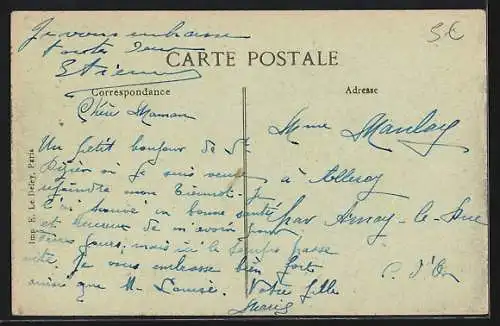 Je vous embrasse
toutes deux
Etienne
5€
CARTE POSTALE
Correspondance
Adresse
Imp. E. Le Deley, Paris
Chère Maman
Un petit bonjour de St
où je suis venue
rejoindre mon Tiennot. Je
l'ai trouvé en bonne santé
et heureux de m'avoir pour
jours, mais ici le temps passe
vite. Je vous embrasse bien fort
ainsi que M. Louise. Votre fille
Marie
Mme Manlay
à Allerey
par Arnay-le-Duc
C. d'Or